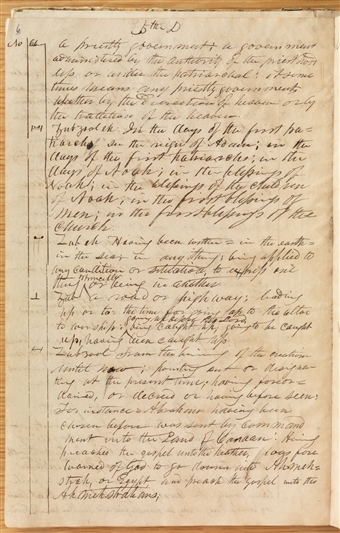 6 5th D
a priestly government; a government
administered by the authority of the priesthood
less or under the patriarchal; at some
times means any priestly government
whether by the direction of heaven or by
the traditions of the heathen
Zubzoolk In the days of the first pa=
triarchs, in the reign of Adam; in the
days of the first patriarchs; in the
days of Noah; in the blessings of
Noah; in the blessings of the children
of Noah; in the first blessings of
men; in the first blessings of the
Church
Zub oh Having been within = in the earth =
in the sea; in any thing; being applied to
any condition or situation, to express one
thing or being in another
Zub a road or highway; leading
up or to; the time for going up to the altar
to worship; going up before the altar
being caught up, going to be caught
up, having been caught up
Zubzool From the beginning of the creation
until now; pointing out or designa=
ting at the present time; having foreor=
dained, or decreed or having before seen;
For instance = Abraham having been
chosen before was sent by command
ment into the Land of Canaan: Having
preached the gospel unto the heathen, was fore
warned of God to go down into Ahmeh=
strah, or Egypt and preach the gospel unto the
Ahmehstrahans;